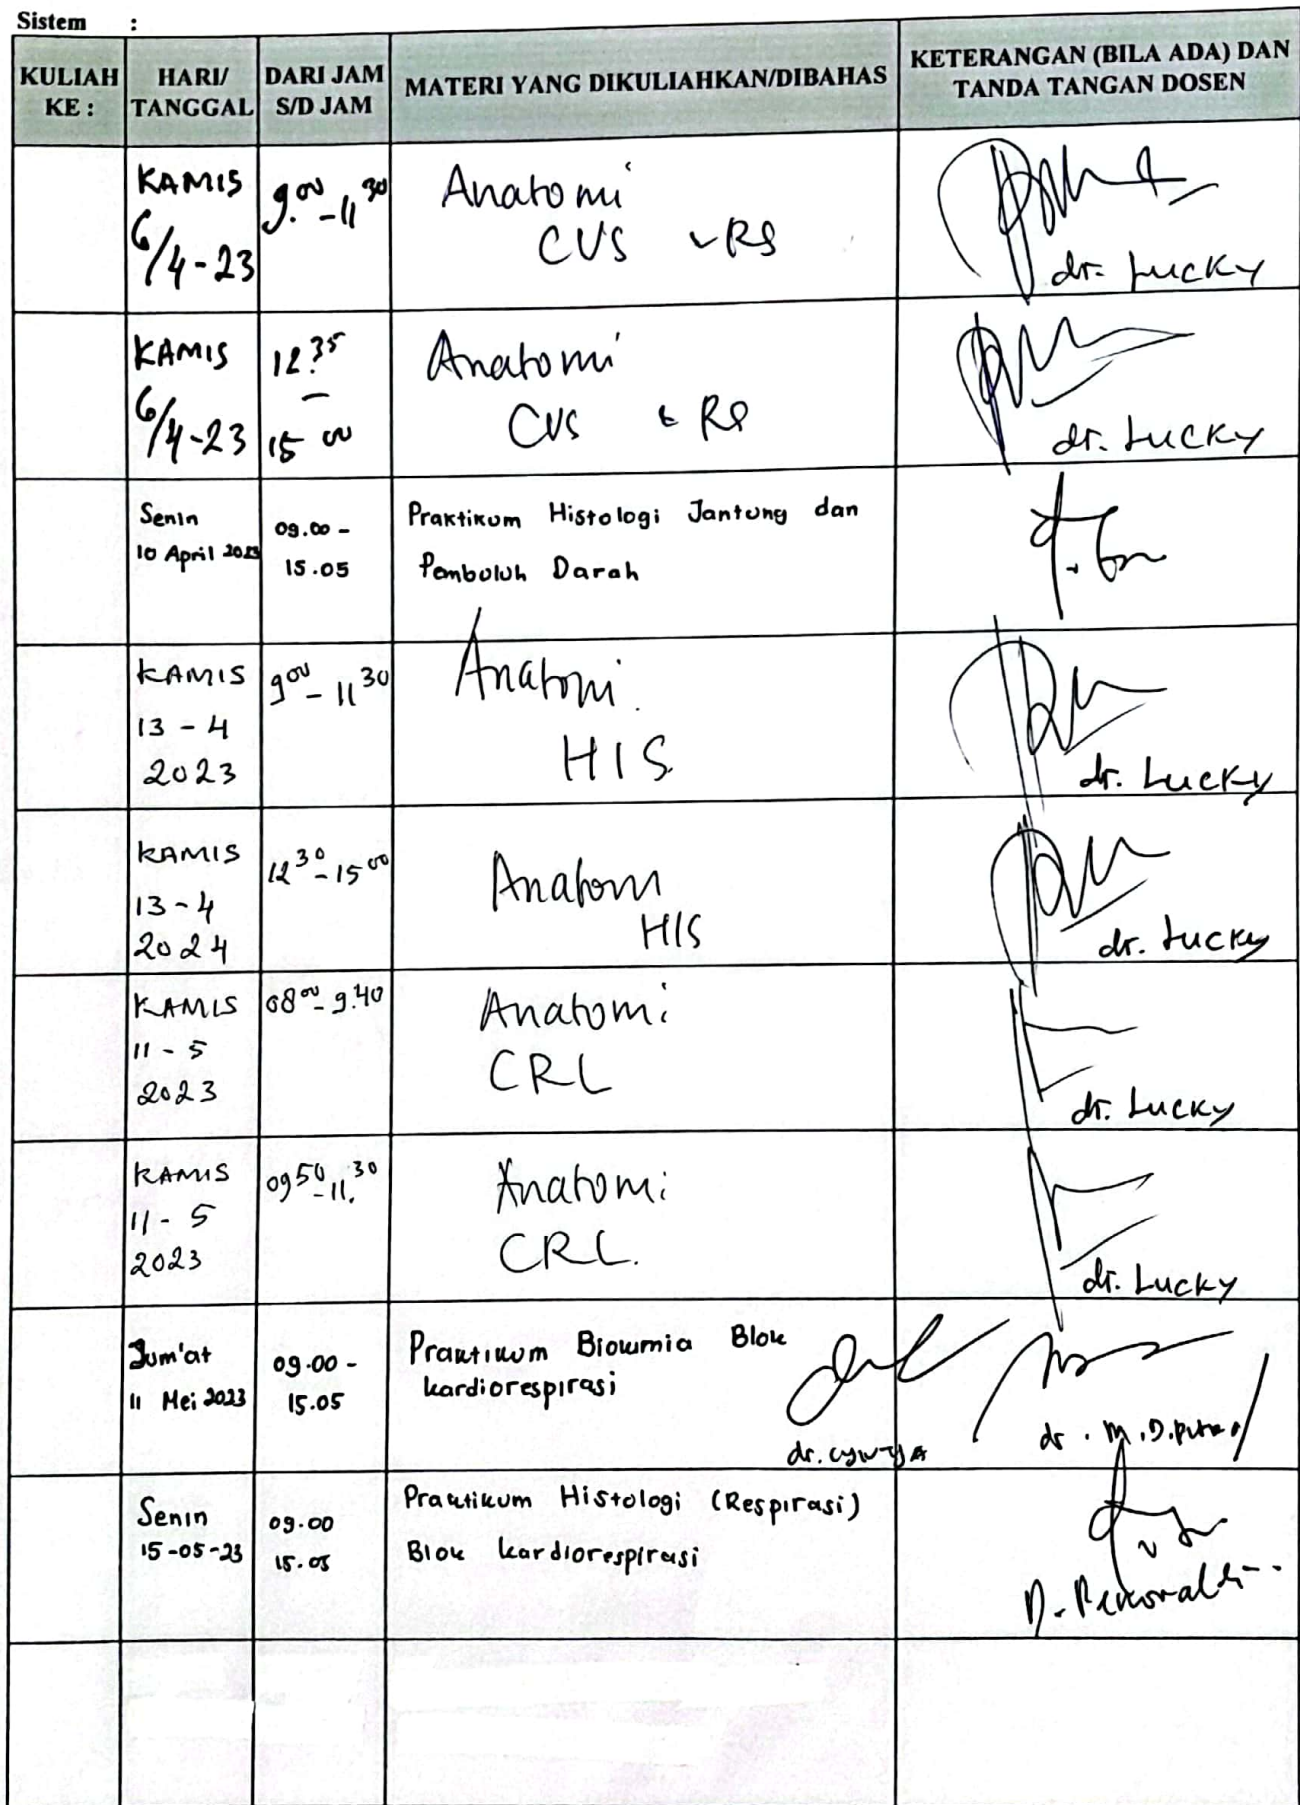 Sistem :
KULIAH KE :
HARI/ TANGGAL
DARI JAM S/D JAM
MATERI YANG DIKULIAHKAN/DIBAHAS
KETERANGAN (BILA ADA) DAN TANDA TANGAN DOSEN
KAMIS
6/4-23
9.00 - 11 30
Anatomi
CVS & RS
dr. Lucky
KAMIS
6/4-23
12.35
-
15 00
Anatomi
CVS & RS
dr. Lucky
Senin
10 April 2023
09.00 -
15.05
Praktikum Histologi Jantung dan
Pembuluh Darah
KAMIS
13 - 4
2023
9 00 - 11 30
Anatomi
HIS
dr. Lucky
KAMIS
13 - 4
2024
12 30 - 15 00
Anatomi
HIS
dr. Lucky
KAMIS
11 - 5
2023
08 00 - 9.40
Anatomi
CRL
dr. Lucky
KAMIS
11 - 5
2023
09 50 - 11. 30
Anatomi
CRL.
dr. Lucky
Jum'at
11 Mei 2023
09.00 -
15.05
Praktikum Biokimia Blok
kardiorespirasi
dr.
dr. M.D.
Senin
15-05-23
09.00
15.05
Praktikum Histologi (Respirasi)
Blok kardiorespirasi